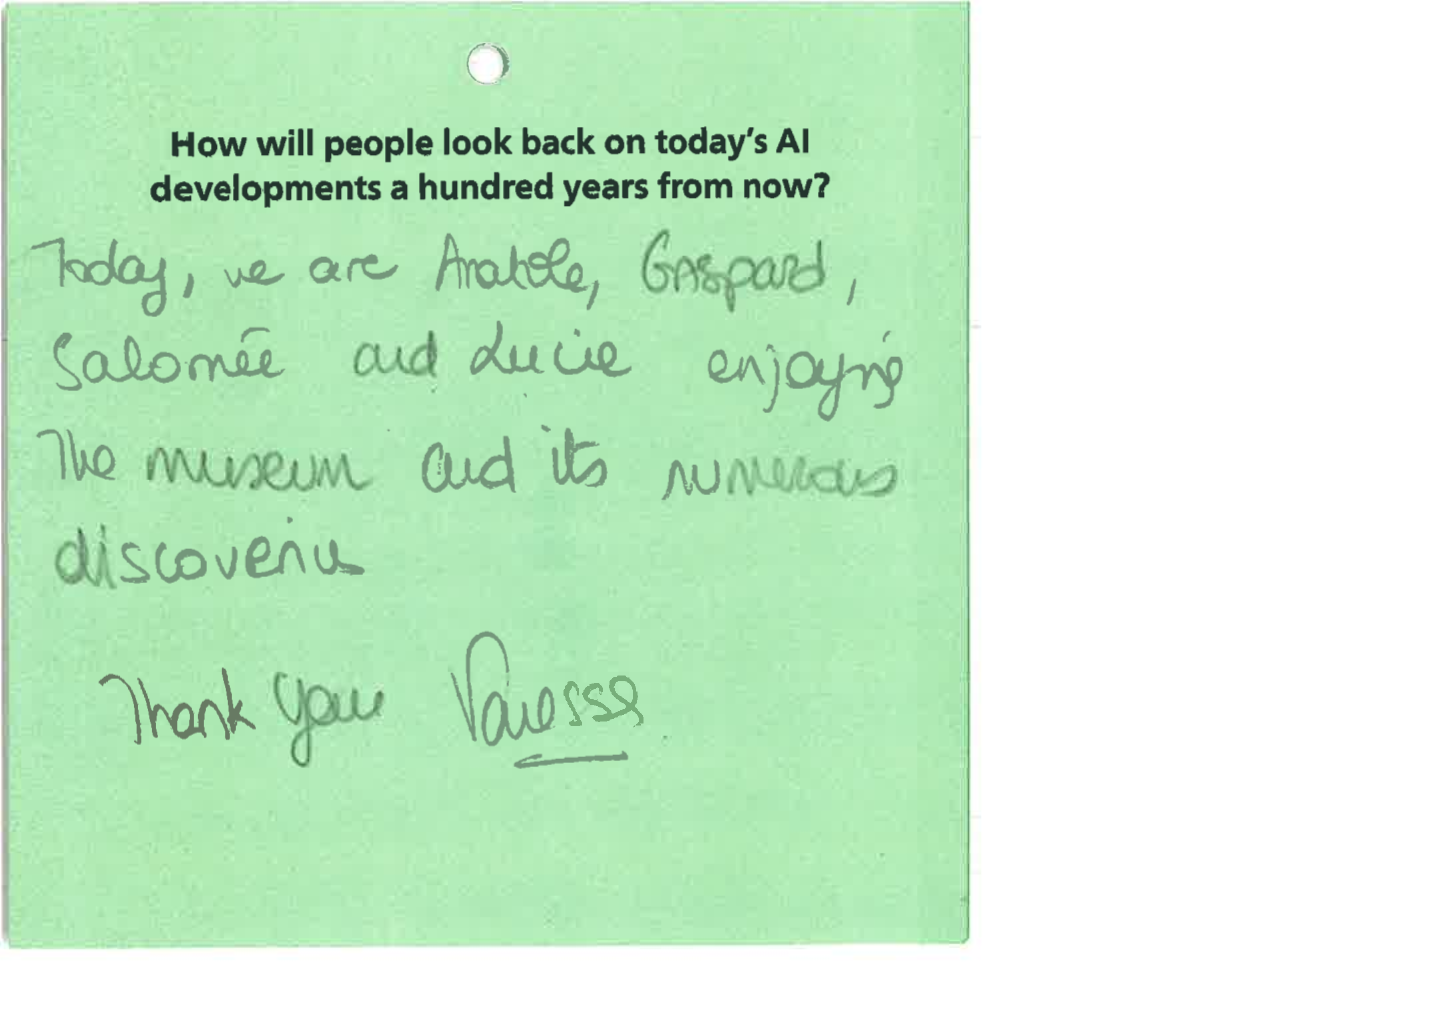 How will people look back on today's AI
developments a hundred years from now?
Today, we are Anatole, Gaspard,
Salomée and Lucie enjoying
The museum and its numerous
discoveries
Thank you Vanessa